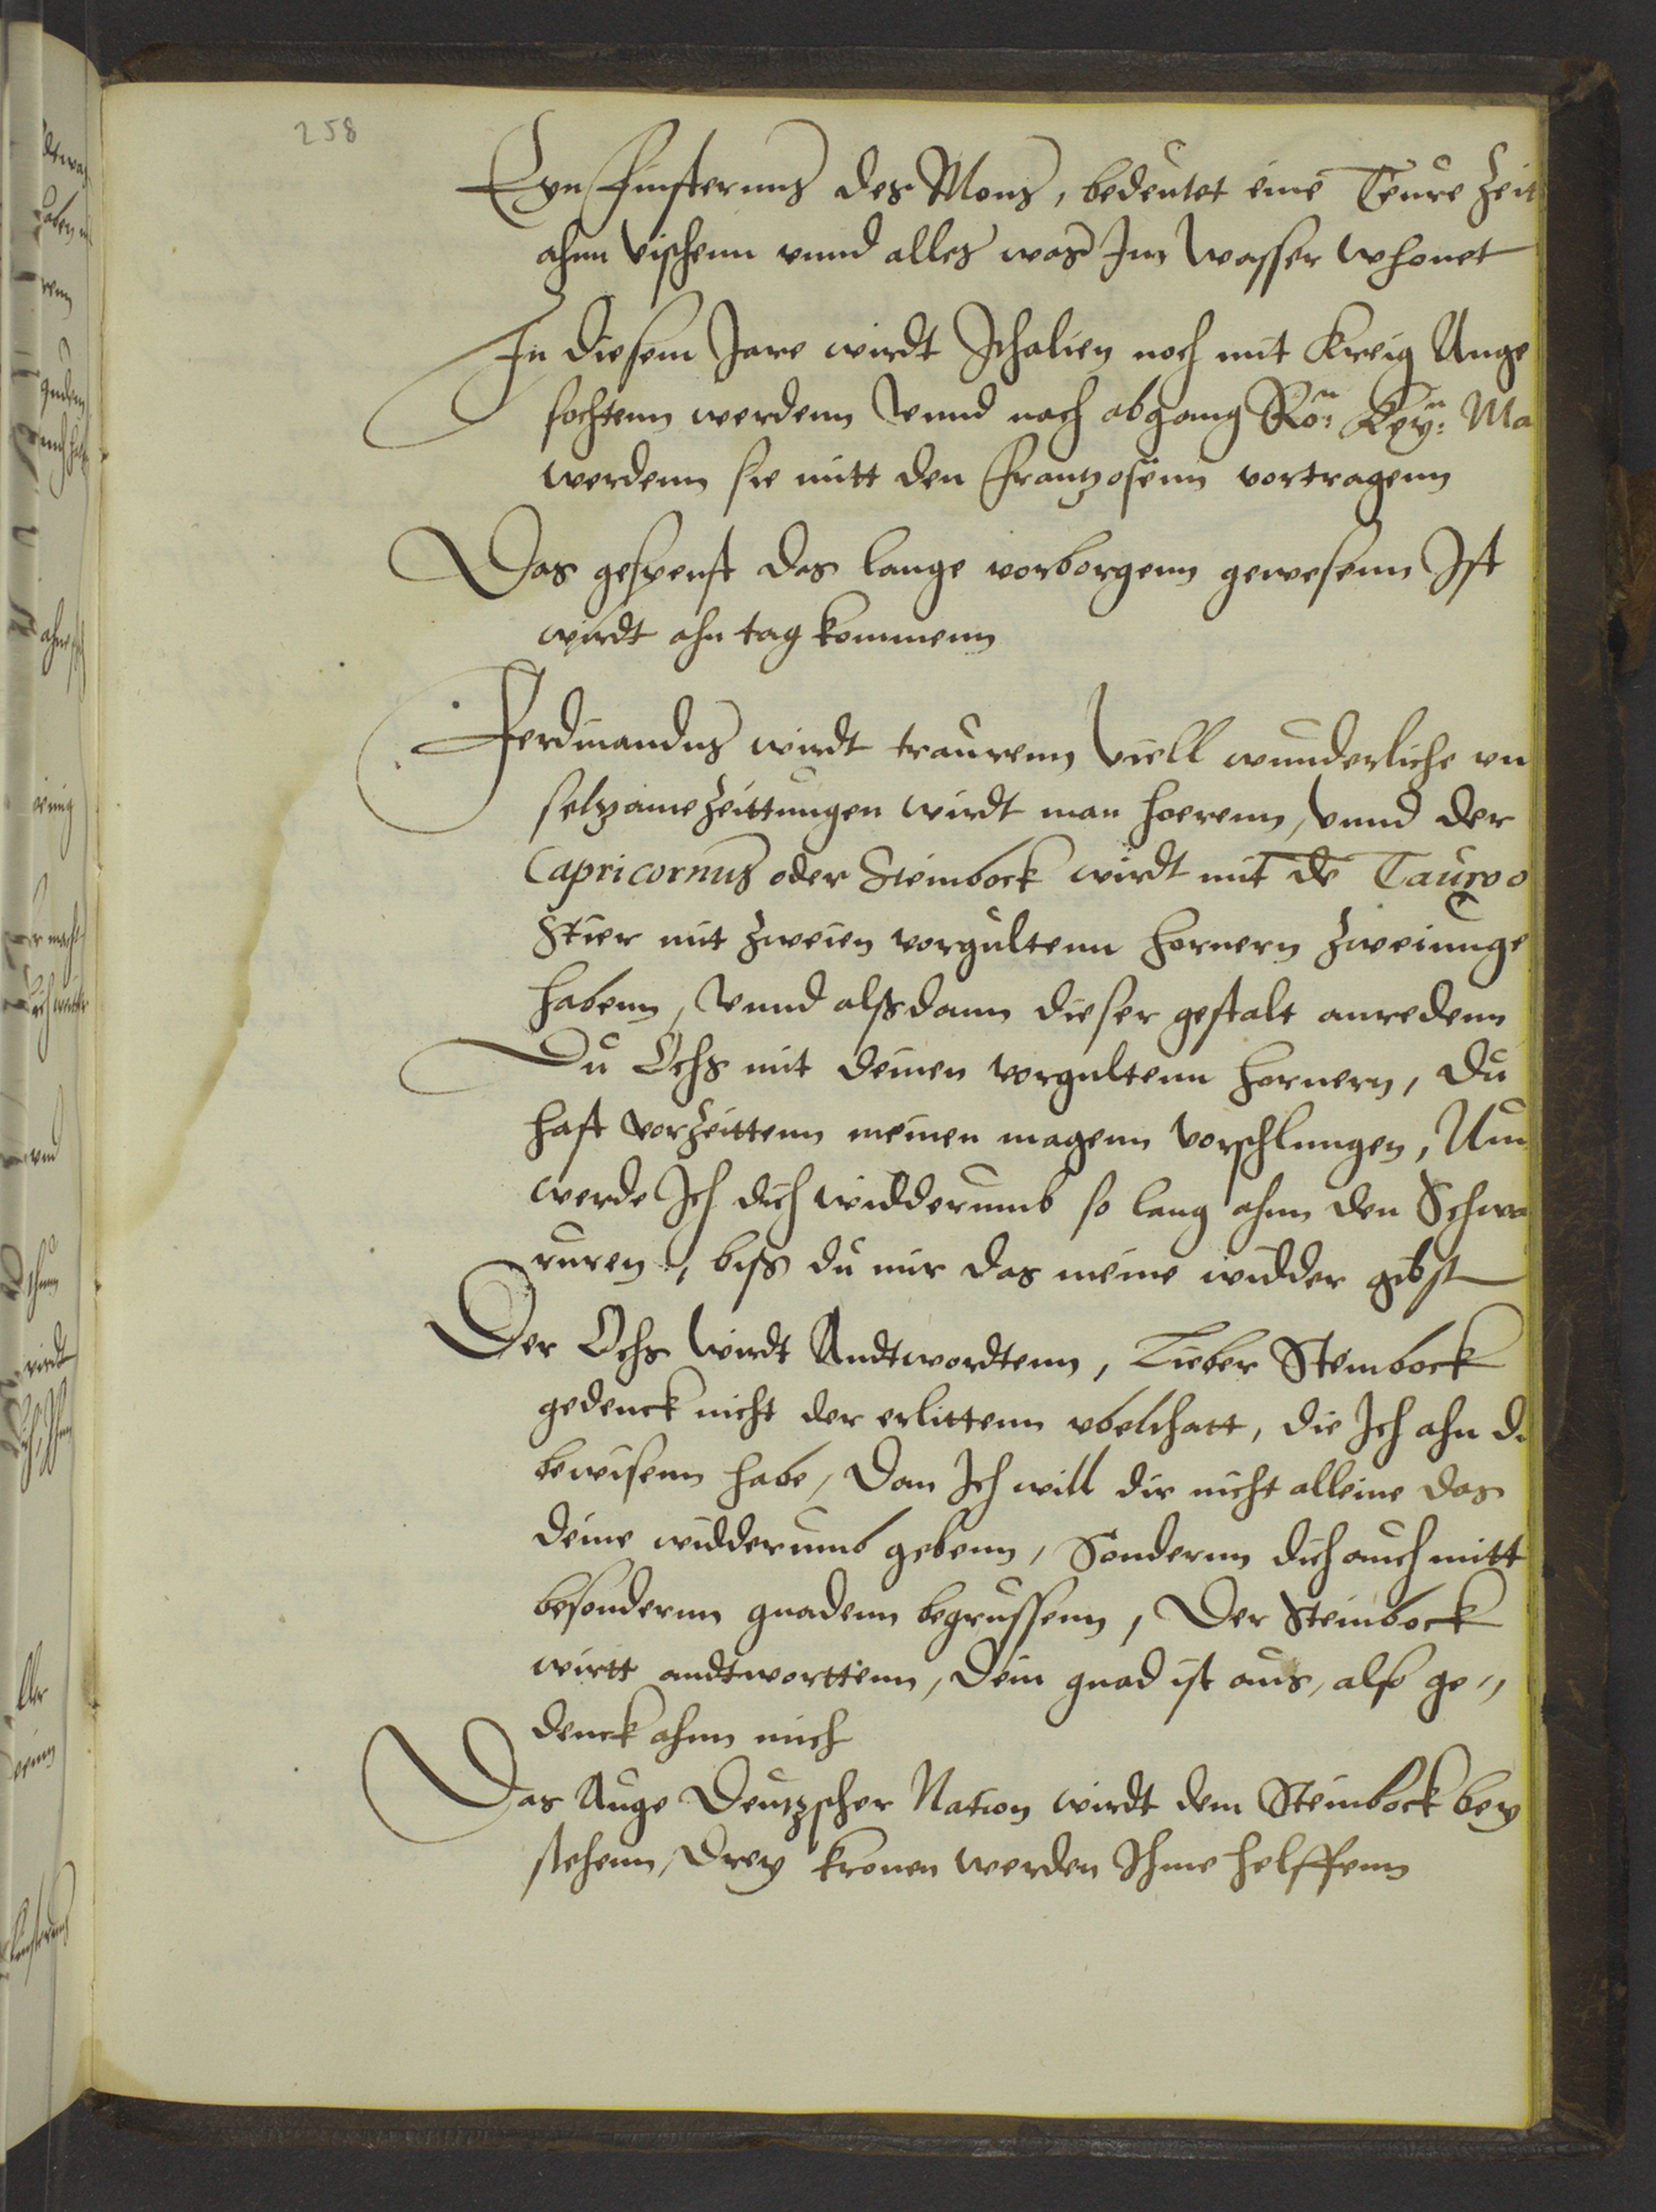 258
Eyn Finsternus des Mons, bedeutet eine Teure Zeit
ahnn vischenn vnnd alles was Im wasser whonet
In diesem Jare wirdt Ithalien noch mit Kreig Ange
fochtenn werdenn Vnnd nach abgang Rön: Keyn: Ma
werdenn sie mitt den Frantzosenn vortragenn
Das gespenst das lange vorborgenn gewesenn Ist
wirdt ahn tag kommenn
Ferdinandus wirdt traurenn Viell wunderliche vn
seltzame Zeittungen wirdt man hoerenn, Vnnd der
Capricornus oder Steinbock wirdt mit de Tauro o
Stier mit Zweien vorgultenn hornern Zweiunge
habenn, Vnnd alßdann dieser gestalt anredenn
Du Ochs mit deinen vorgultenn hornern, du
hast vorzeittenn meinen magenn vorschlungen, Nun
werde Ich dich widderumb so lang ahnn den Schwa
ruren, biß du mir das meine widder gibst
Der Ochs wirdt Andtwordtenn, Lieber Steinbock
gedenck nicht der erlittenn vbelthatt, die Ich ahn di
bewisenn habe, Dan Ich will dir nicht alleine das
deine widderumb gebenn, Sondernn dich auch mitt
besondernn gnadenn begrussenn, Der Steinbock
wirtt andtworttenn, Dein gnad ist aus, also ge„
denck ahnn mich
Das Auge Deutzscher Nation wirdt dem Steinbock bey
stehenn, Drey kronen werden Ihme helffenn